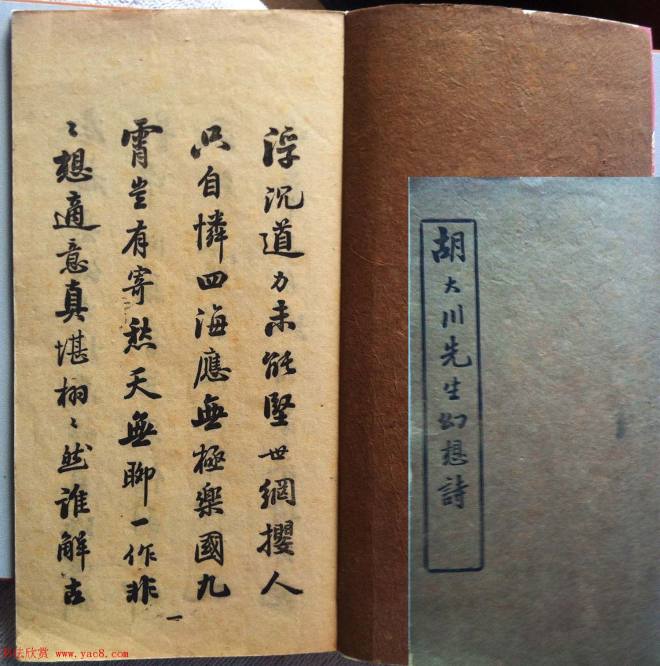 胡大川先生幻想詩
浮沉道力未能堅世網攖人
只自憐四海應無極樂國九
霄豈有寄愁天無聊一作非
〻想適意真堪栩〻然誰解古
一
书法欣赏 www.yac8.com